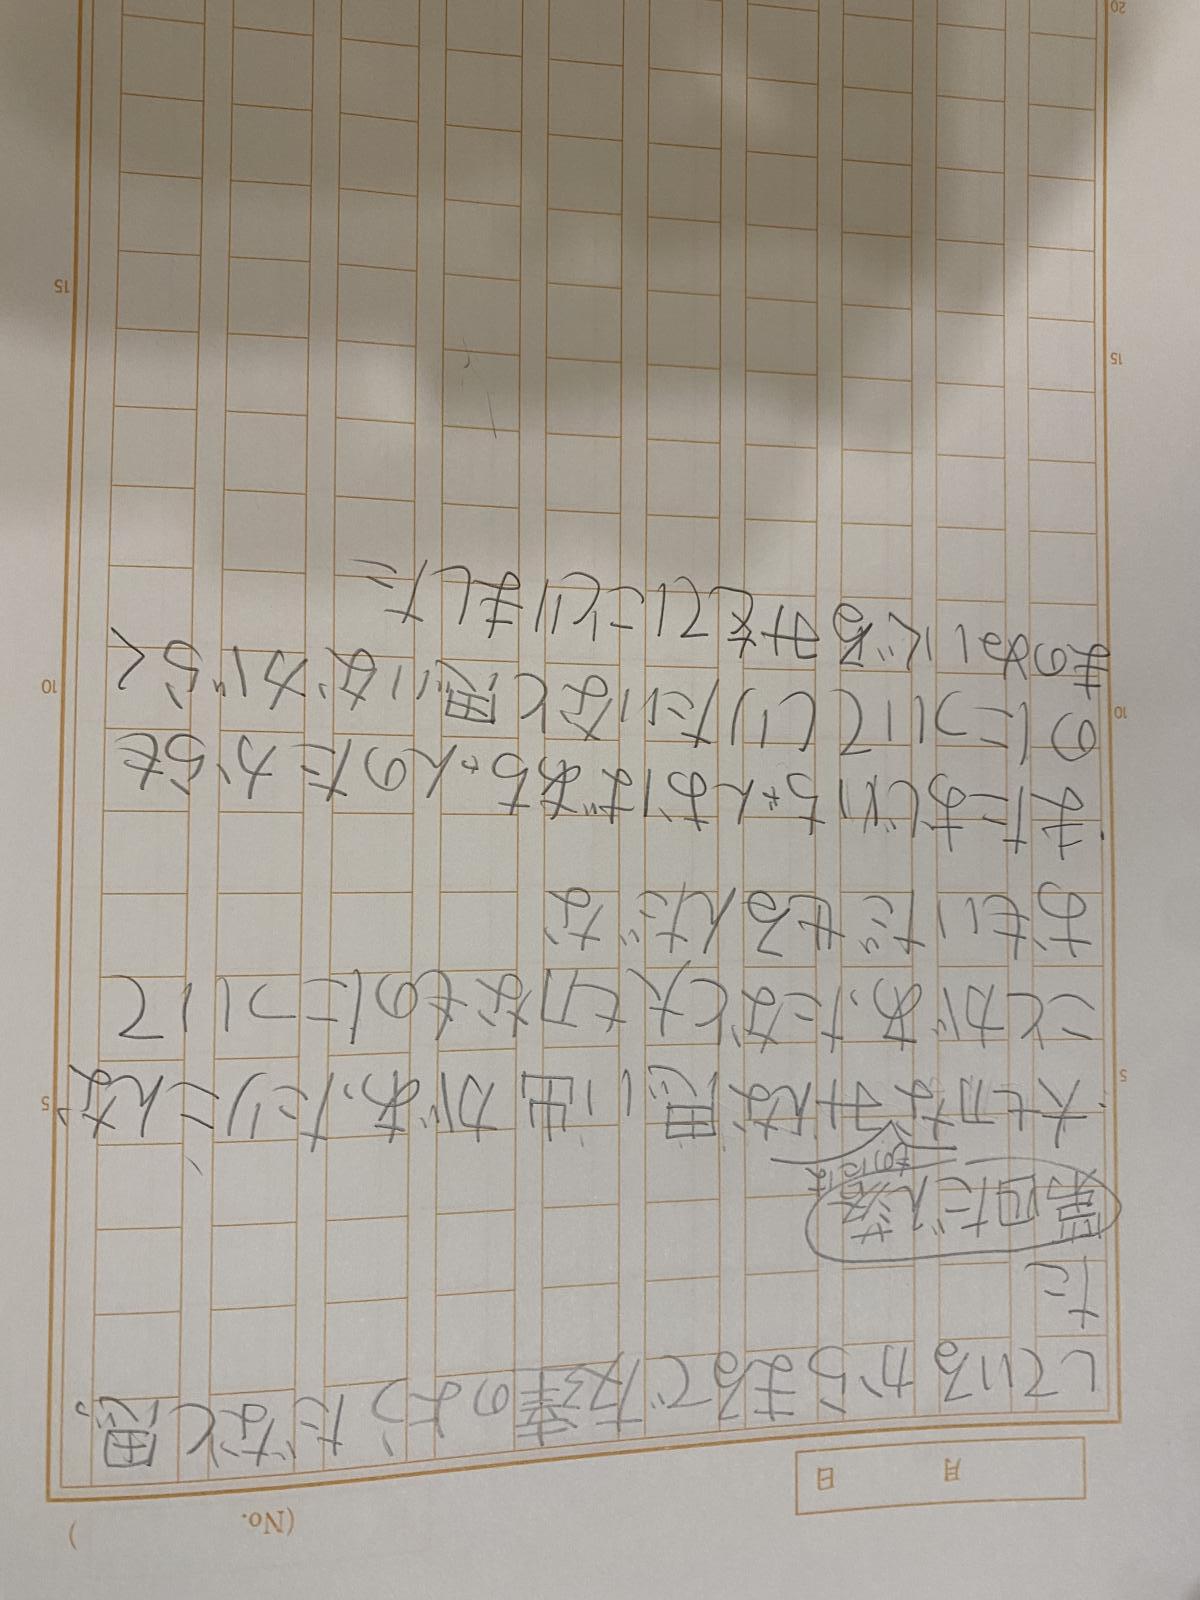 (No. )
月 日
しているからまるで友達のようだなと思っ
た
第四だん落
ものには
大切なみんな思い出があったりこんな
ことがあったなと大切なものについて
おもいだせるんだな
またおじいちゃんおばあちゃんのたからも
のについてしりたいなと思いながらく
まのぬいぐるみをてにとりました
5
10
15
20
5
10
15